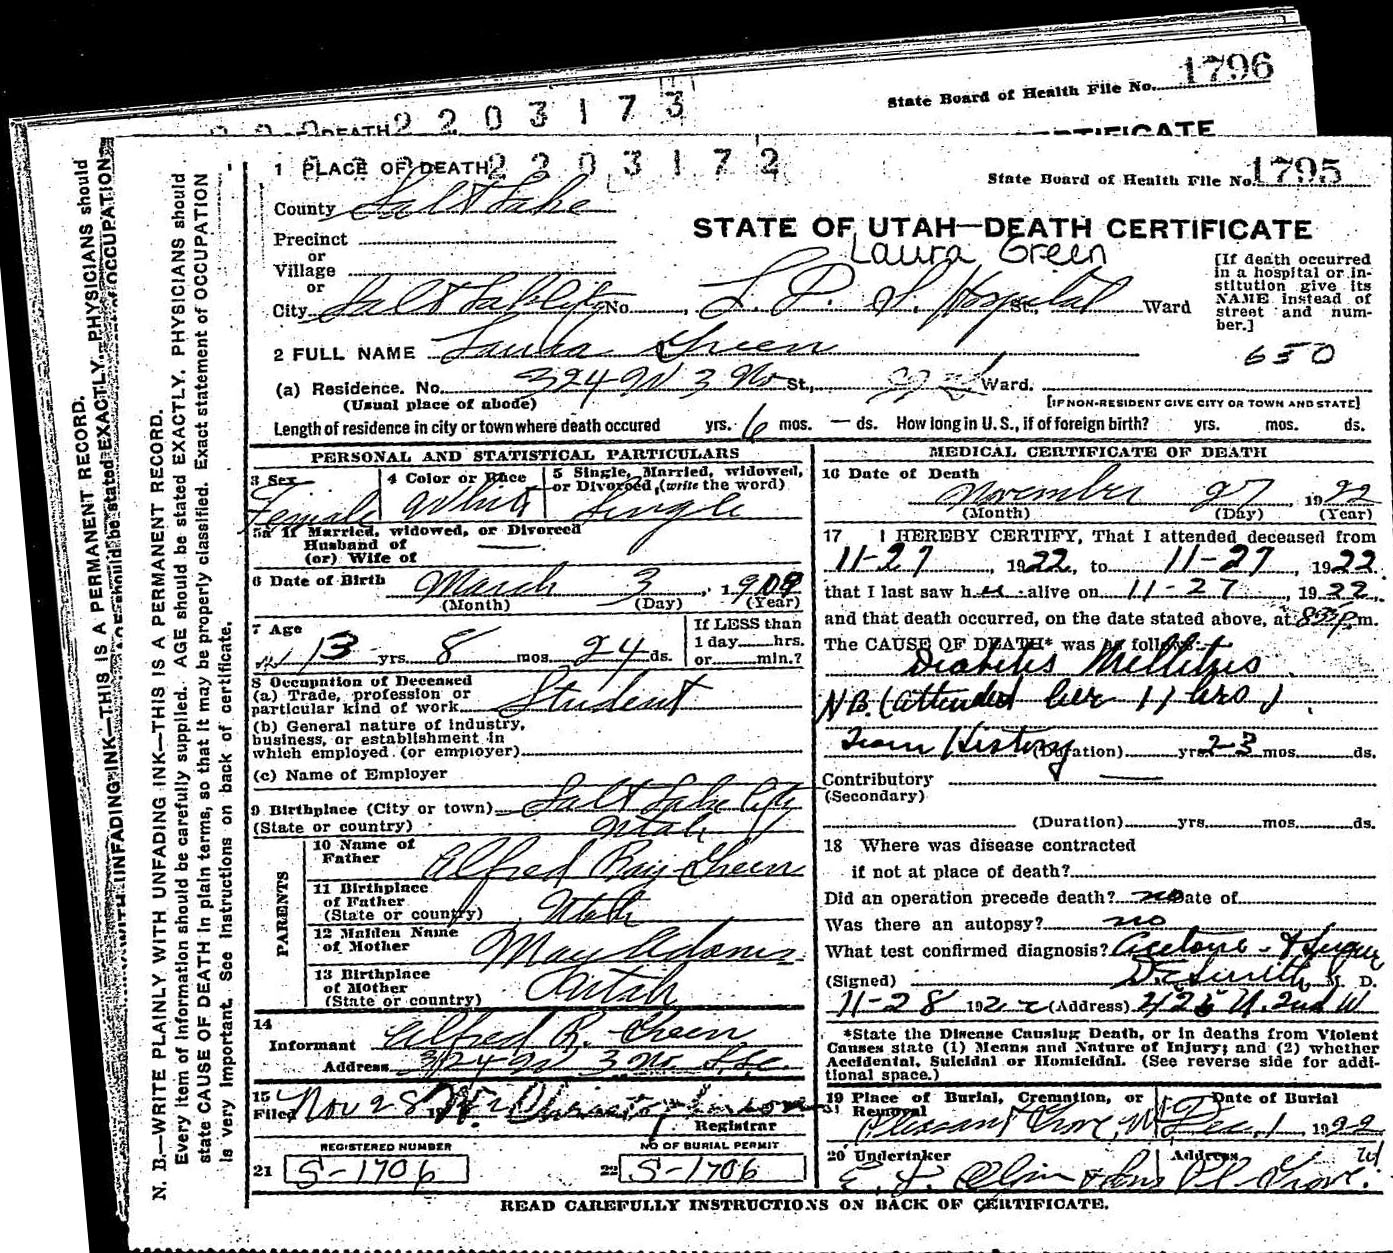 State Board of Health File No. 1796
DEATH 2 2 0 3 1 7 3
CERTIFICATE
1 PLACE OF DEATH 2 2 0 3 1 7 2
State Board of Health File No. 1795
County Salt Lake
STATE OF UTAH—DEATH CERTIFICATE
Precinct
or
Village
or
Laura Green
[If death occurred in a hospital or institution give its NAME instead of street and number.]
City Salt Lake City No. , L. D. S. Hospital St., Ward
650
2 FULL NAME Laura Green
(a) Residence. No. 324 W 3 No St., Ward.
(Usual place of abode) [IF NON-RESIDENT GIVE CITY OR TOWN AND STATE]
Length of residence in city or town where death occured yrs. 6 mos. — ds. How long in U. S., if of foreign birth? yrs. mos. ds.
PERSONAL AND STATISTICAL PARTICULARS
3 Sex Female
4 Color or Race White
5 Single, Married, widowed, or Divorced, (write the word) Single
5a If Married, widowed, or Divorced
Husband of
(or) Wife of —
6 Date of Birth March 3, 1908
(Month) (Day) (Year)
7 Age 13 yrs. 8 mos. 24 ds.
If LESS than
1 day hrs.
or min.?
8 Occupation of Deceased
(a) Trade, profession or
particular kind of work Student
(b) General nature of industry,
business, or establishment in
which employed (or employer)
(c) Name of Employer
9 Birthplace (City or town) Salt Lake City
(State or country) Utah
PARENTS
10 Name of Father Alfred Ray Green
11 Birthplace of Father (State or country) Utah
12 Maiden Name of Mother May Adams
13 Birthplace of Mother (State or country) Utah
14
Informant Alfred R. Green
Address 324 W 3 No S.L.C.
15
Filed Nov 28 19
Registrar
REGISTERED NUMBER
21 S-1706
NO OF BURIAL PERMIT
22 S-1706
MEDICAL CERTIFICATE OF DEATH
16 Date of Death
November 27, 1922
(Month) (Day) (Year)
17 I HEREBY CERTIFY, That I attended deceased from
11-27, 1922, to 11-27, 1922
that I last saw her alive on 11-27, 1922,
and that death occurred, on the date stated above, at m.
The CAUSE OF DEATH* was as follows:
Diabetis Mellitus
N.B. (attended her 11 hrs)
From History (Duration) yrs. 2-3 mos. ds.
Contributory —
(Secondary)
(Duration) yrs. mos. ds.
18 Where was disease contracted
if not at place of death?
Did an operation precede death? no Date of
Was there an autopsy? no
What test confirmed diagnosis? Acetone - & Sugar
(Signed) Smith M. D.
11-28 1922 (Address) 425 N. 2nd W
*State the Disease Causing Death, or in deaths from Violent
Causes state (1) Means and Nature of Injury; and (2) whether
Accidental, Suicidal or Homicidal. (See reverse side for addi-
tional space.)
19 Place of Burial, Cremation, or Removal Pleasant Grove, Ut
Date of Burial Dec. 1 1922
20 Undertaker Address
E. J. Olpin & Sons Pl. Grove. Ut
READ CAREFULLY INSTRUCTIONS ON BACK OF CERTIFICATE.
N. B.—WRITE PLAINLY WITH UNFADING INK—THIS IS A PERMANENT RECORD.
Every item of information should be carefully supplied. AGE should be stated EXACTLY. PHYSICIANS should
state CAUSE OF DEATH in plain terms, so that it may be properly classified. Exact statement of OCCUPATION
is very important. See instructions on back of certificate.
WITH UNFADING INK—THIS IS A PERMANENT RECORD.
AGE should be stated EXACTLY. PHYSICIANS should
of OCCUPATION